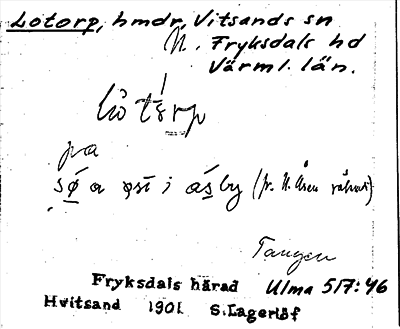 Lotorp, hmdr, Vitsands sn
N. Fryksdals hd
Värml. län.
Lo torp
på
sø a øst i åsby (fr. N. Åsen räknat)
Tangen
Fryksdals härad Ulma 517:46
Hvitsand 1901 S. Lagerlöf